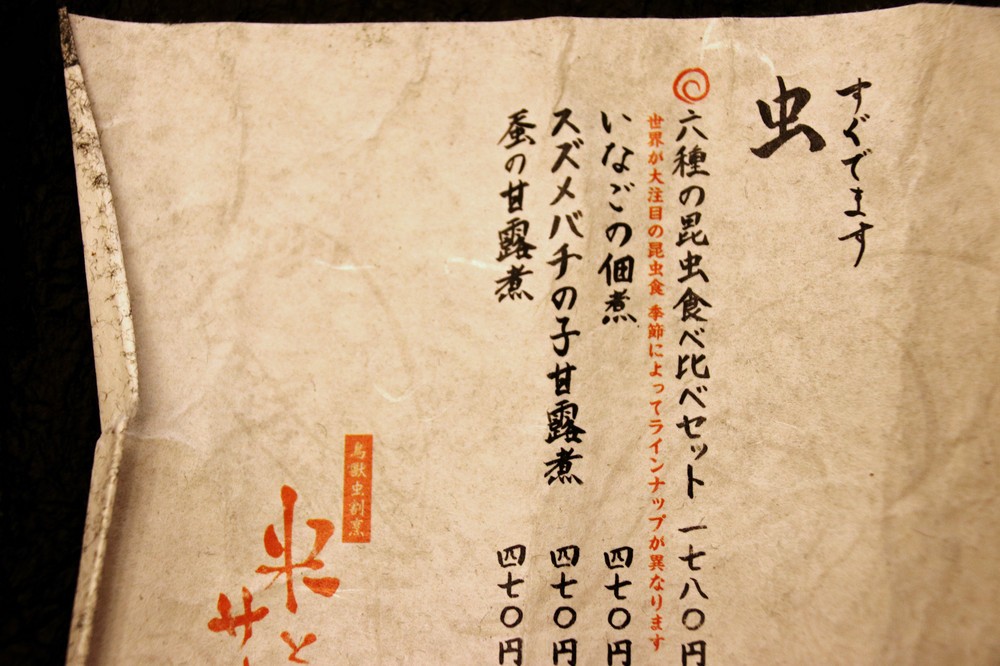 すぐでます
虫
六種の昆虫食べ比べセット 一七八〇円
世界が大注目の昆虫食 季節によってラインナップが異なります
いなごの佃煮 四七〇円
スズメバチの子甘露煮 四七〇円
蚕の甘露煮 四七〇円
鳥獣虫割烹
米とサ